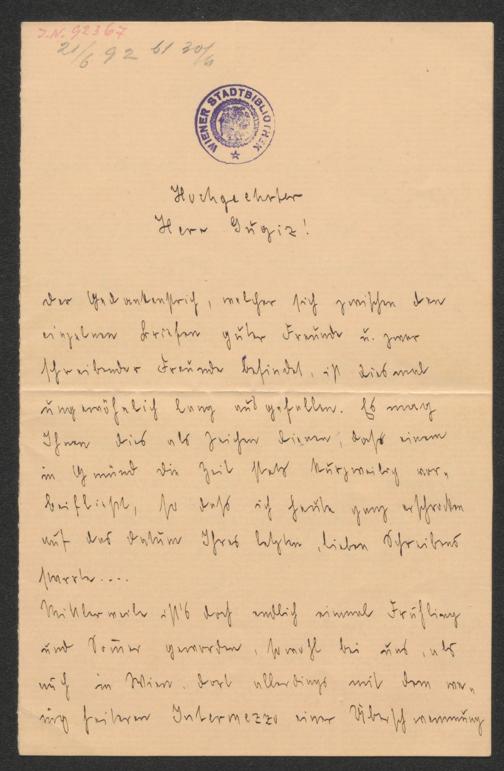 J.N. 92367
21/6 92 bl 30/6
WIENER STADTBIBLIOTHEK
Hochgeehrter
Herr Gugiz!
Der Gedankenstrich, welcher sich zwischen den
einzelnen Briefen guter Freunde u. zwar
schreibender Freunde befindet, ist diesmal
ungewöhnlich lang ausgefallen. Es mag
Ihnen dies als Zeichen dienen, dass einem
in Gmünd die Zeit stets kurzweilig vor-
beifliesst, so dass ich heute ganz erschrocken
auf das Datum Ihres letzten, lieben Schreibens
starrte....
Mittlerweile ist's doch endlich einmal Frühling
und Somer geworden, sowohl bei uns, als
auch in Wien. dort allerdings mit dem we-
nig heiteren Intermezzo einer Überschwemmung